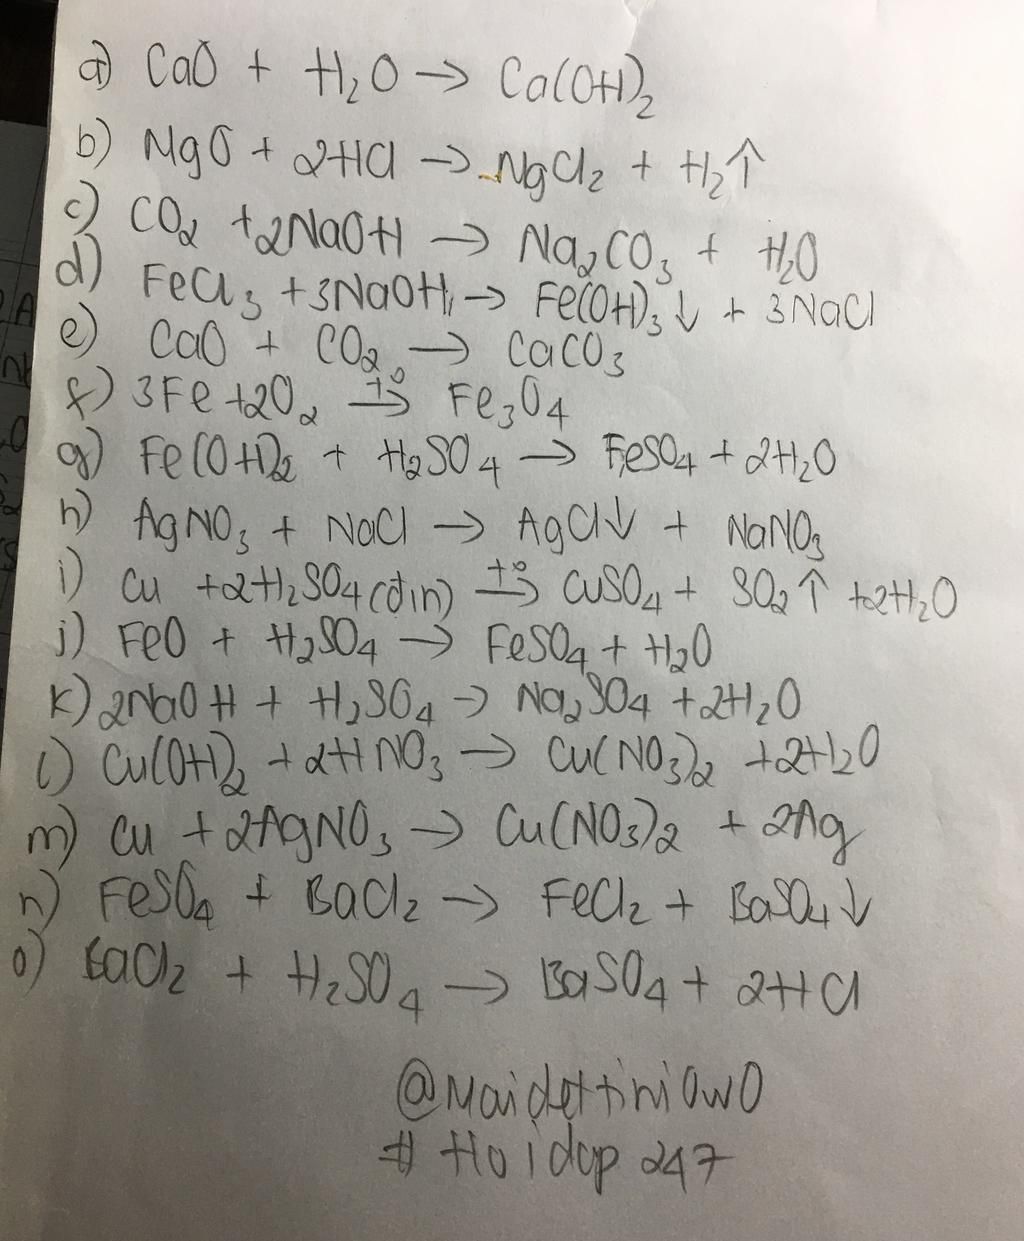 a) CaO + H₂O → Ca(OH)₂
b) MgO + 2HCl → MgCl₂ + H₂↑
c) CO₂ + 2NaOH → Na₂CO₃ + H₂O
d) FeCl₃ + 3NaOH → Fe(OH)₃↓ + 3NaCl
e) CaO + CO₂ → CaCO₃
f) 3Fe + 2O₂ →(t°) Fe₃O₄
g) Fe(OH)₂ + H₂SO₄ → FeSO₄ + 2H₂O
h) AgNO₃ + NaCl → AgCl↓ + NaNO₃
i) Cu + 2H₂SO₄(đ/n) →(t°) CuSO₄ + SO₂↑ + 2H₂O
j) FeO + H₂SO₄ → FeSO₄ + H₂O
k) 2NaOH + H₂SO₄ → Na₂SO₄ + 2H₂O
l) Cu(OH)₂ + 2HNO₃ → Cu(NO₃)₂ + 2H₂O
m) Cu + 2AgNO₃ → Cu(NO₃)₂ + 2Ag
n) FeSO₄ + BaCl₂ → FeCl₂ + BaSO₄↓
o) BaCl₂ + H₂SO₄ → BaSO₄ + 2HCl
# Hoidap 247